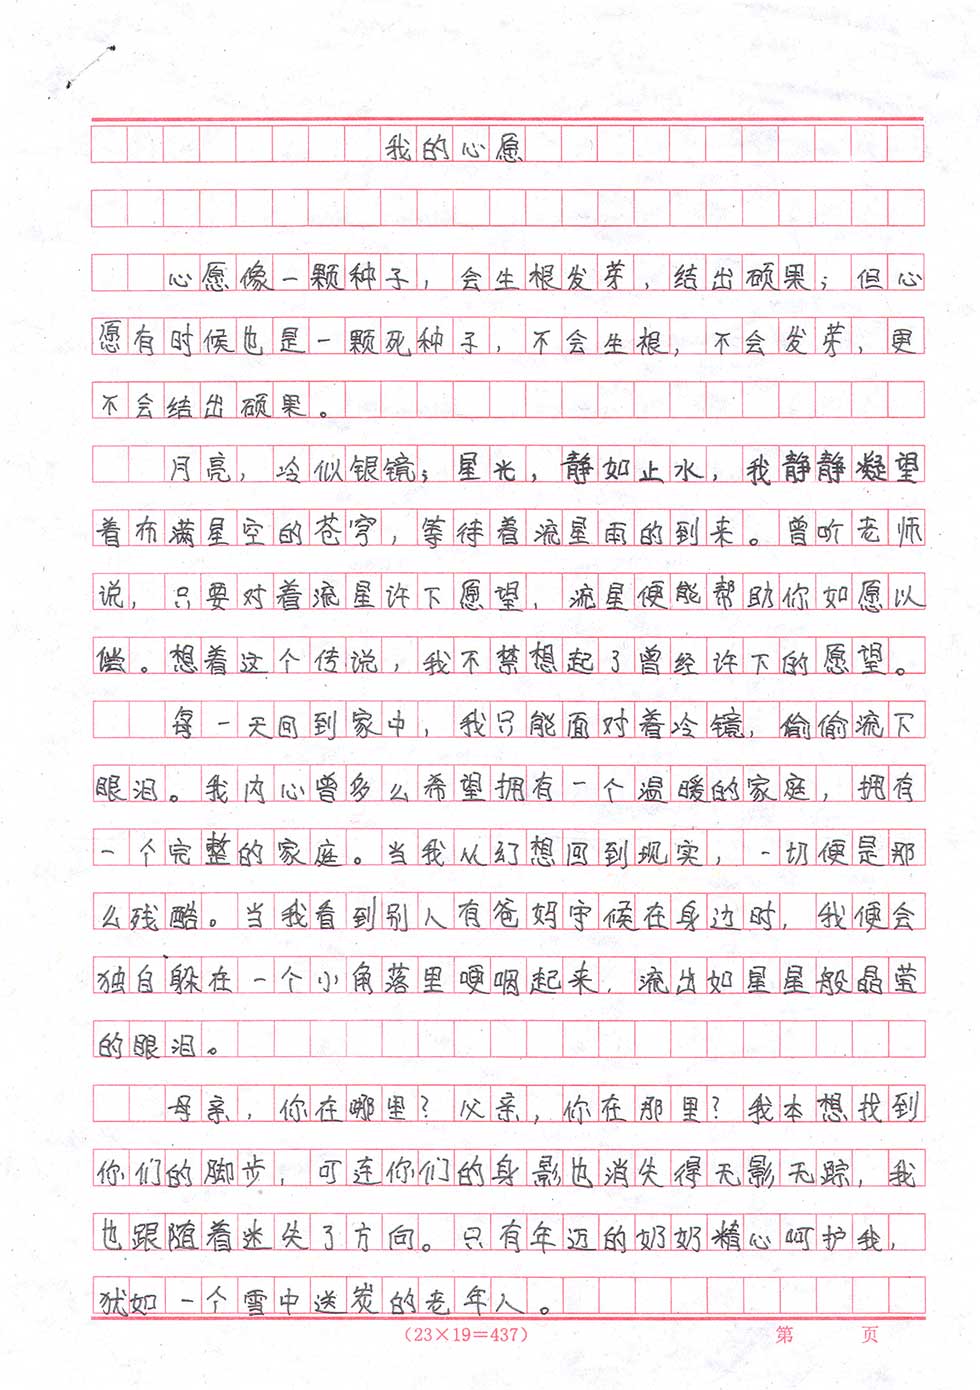 我的心愿
心愿像一颗种子，会生根发芽，结出硕果；但心
愿有时候也是一颗死种子，不会生根，不会发芽，更
不会结出硕果。
月亮，冷似银镜；星光，静如止水，我静静凝望
着布满星空的苍穹，等待着流星雨的到来。曾听老师
说，只要对着流星许下愿望，流星便能帮助你如愿以
偿。想着这个传说，我不禁想起了曾经许下的愿望。
每一天回到家中，我只能面对着冷镜，偷偷流下
眼泪。我内心曾多么希望拥有一个温暖的家庭，拥有
一个完整的家庭。当我从幻想回到现实，一切便是那
么残酷。当我看到别人有爸妈守候在身边时，我便会
独自躲在一个小角落里哽咽起来，流出如星星般晶莹
的眼泪。
母亲，你在哪里？父亲，你在那里？我本想找到
你们的脚步，可连你们的身影也消失得无影无踪，我
也跟随着迷失了方向。只有年迈的奶奶精心呵护我，
犹如一个雪中送炭的老年人。
（23×19＝437）
第 页